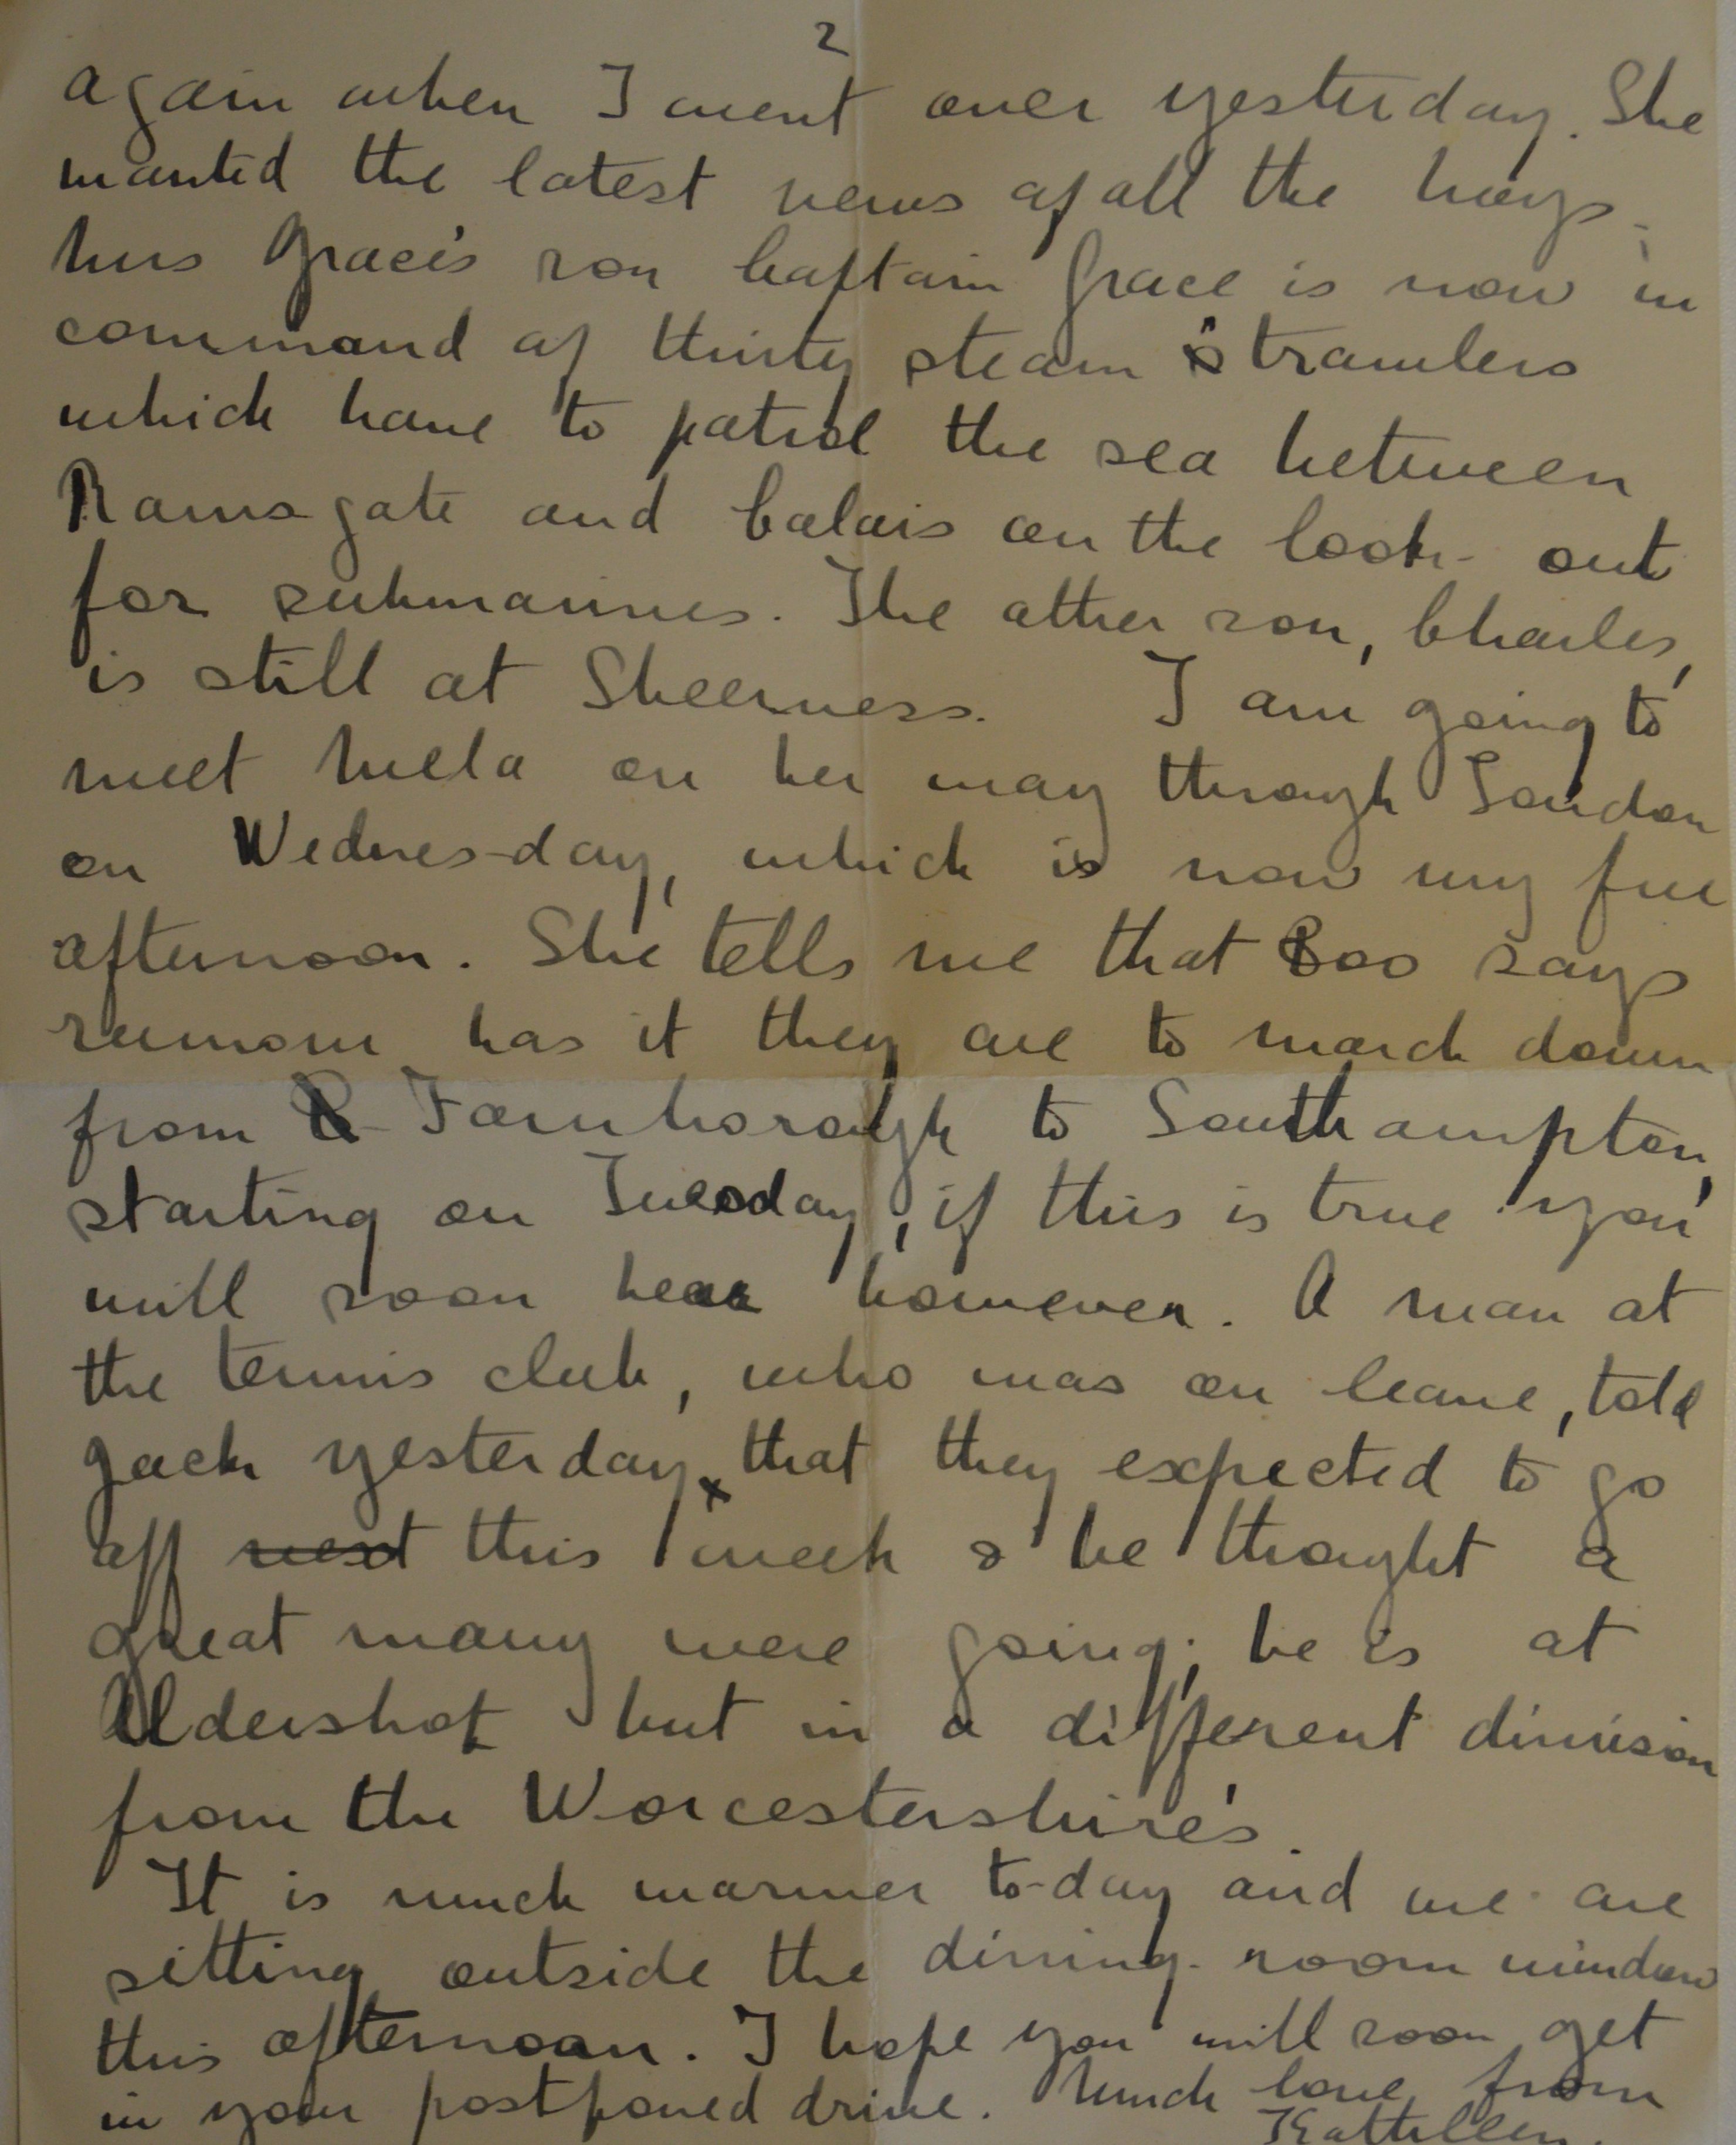 2
again when I went over yesterday. She
wanted the latest news of all the boys.
Mrs Grace's son Captain Grace is now in
command of thirty steam trawlers
which have to patrol the sea between
Ramsgate and Calais on the look-out
for submarines. The other son, Charles,
is still at Sheerness. I am going to
meet Mela on her way through London
on Wednesday, which is now my free
afternoon. She tells me that Boo says
rumour has it they are to march down
from Farnborough to Southampton,
starting on Tuesday, if this is true you
will soon hear however. A man at
the tennis club, who was on leave, told
Jack yesterday that they expected to go
off next this week & he thought a
great many were going; he is at
Aldershot but in a different division
from the Worcestershire's.
It is much warmer to-day and we are
sitting outside the dining-room window
this afternoon. I hope you will soon get
in your postponed drive. Much love from
Kathleen.